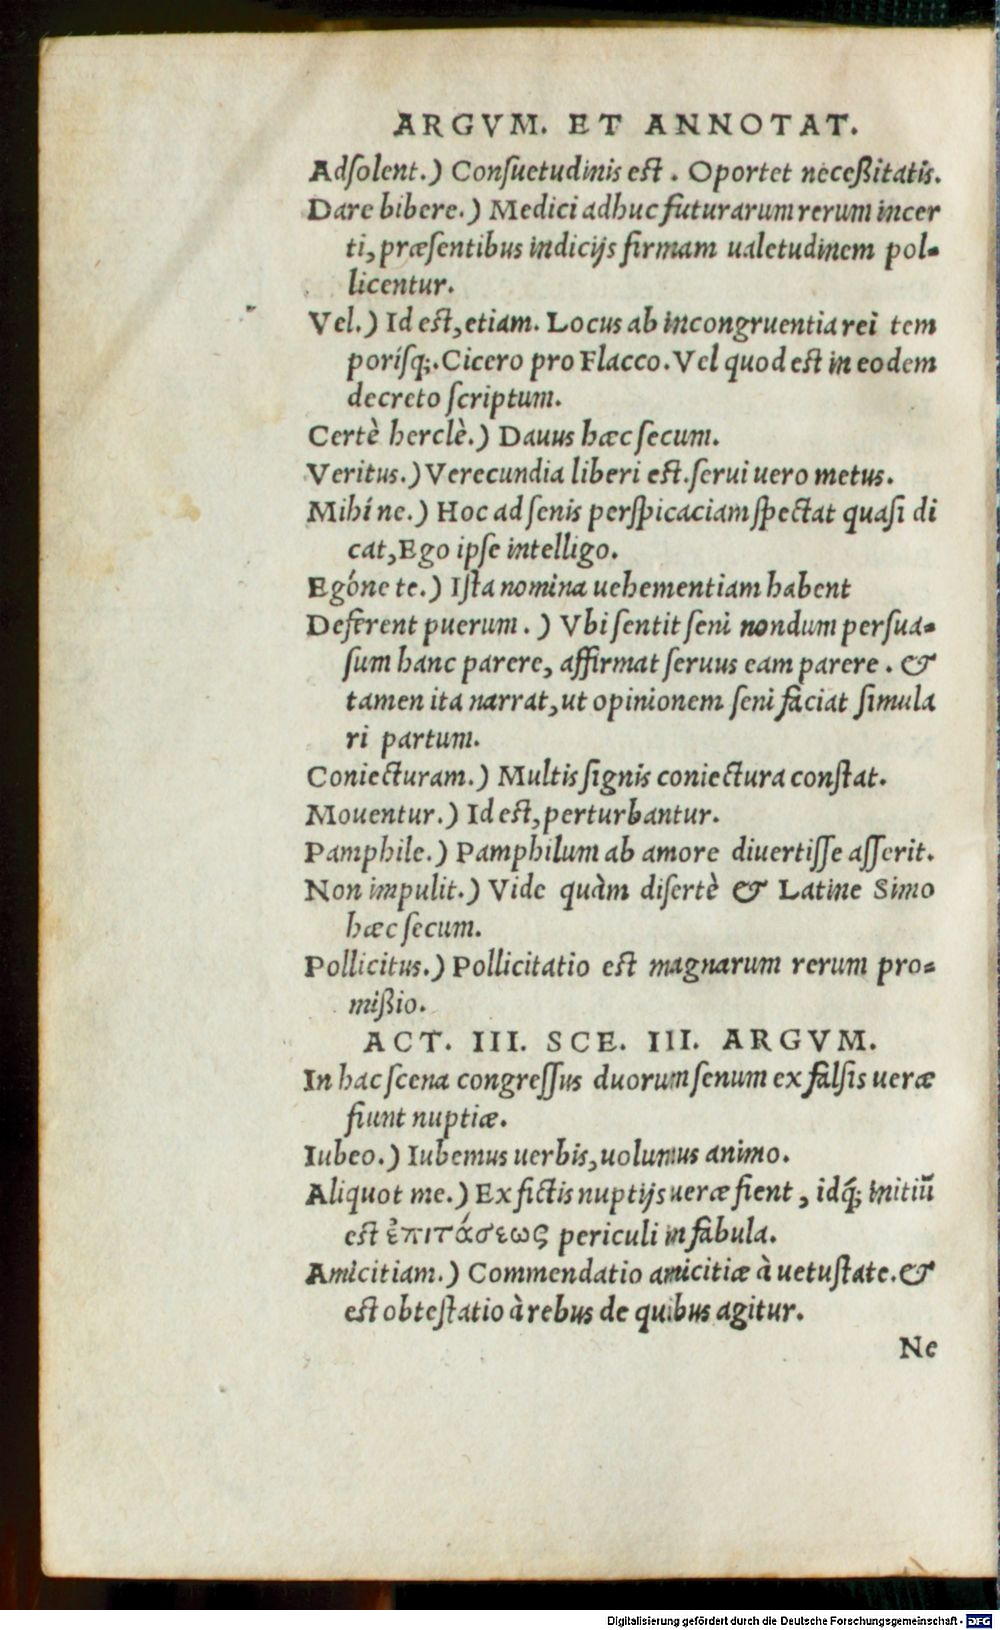 ARGVM. ET ANNOTAT.
Adſolent.) Conſuetudinis eſt . Oportet neceßitatis.
Dare bibere.) Medici adhuc futurarum rerum incer
ti, præſentibus indicijs firmam ualetudinem pol-
licentur.
Vel.) Id eſt, etiam. Locus ab incongruentia rei tem
poriſq;. Cicero pro Flacco. Vel quod eſt in eodem
decreto ſcriptum.
Certè herclè.) Dauus hæc ſecum.
Veritus.) Verecundia liberi eſt. ſerui uero metus.
Mihí ne.) Hoc ad ſenis perſpicaciam ſpectat quaſi di
cat, Ego ipſe intelligo.
Egóne te.) Iſta nomina uehementiam habent
Deferent puerum . ) Vbi ſentit ſeni nondum perſua-
ſum hanc parere, affirmat ſeruus eam parere . &
tamen ita narrat, ut opinionem ſeni faciat ſimula
ri partum.
Coniecturam.) Multis ſignis coniectura conſtat.
Mouentur.) Id eſt, perturbantur.
Pamphile.) Pamphilum ab amore diuertiſſe aſſerit.
Non impulit.) Vide quàm diſertè & Latine Simo
hæc ſecum.
Pollicitus.) Pollicitatio eſt magnarum rerum pro-
mißio.
ACT. III. SCE. III. ARGVM.
In hac ſcena congreſſus duorum ſenum ex falſis ueræ
fiunt nuptiæ.
Iubeo.) Iubemus uerbis, uolumus animo.
Aliquot me.) Ex fictis nuptijs ueræ fient , idq́; initiū
eſt ἐπιτάσεως periculi in fabula.
Amicitiam.) Commendatio amicitiæ à uetuſtate. &
eſt obteſtatio à rebus de quibus agitur.
Ne
Digitalisierung gefördert durch die Deutsche Forschungsgemeinschaft - DFG